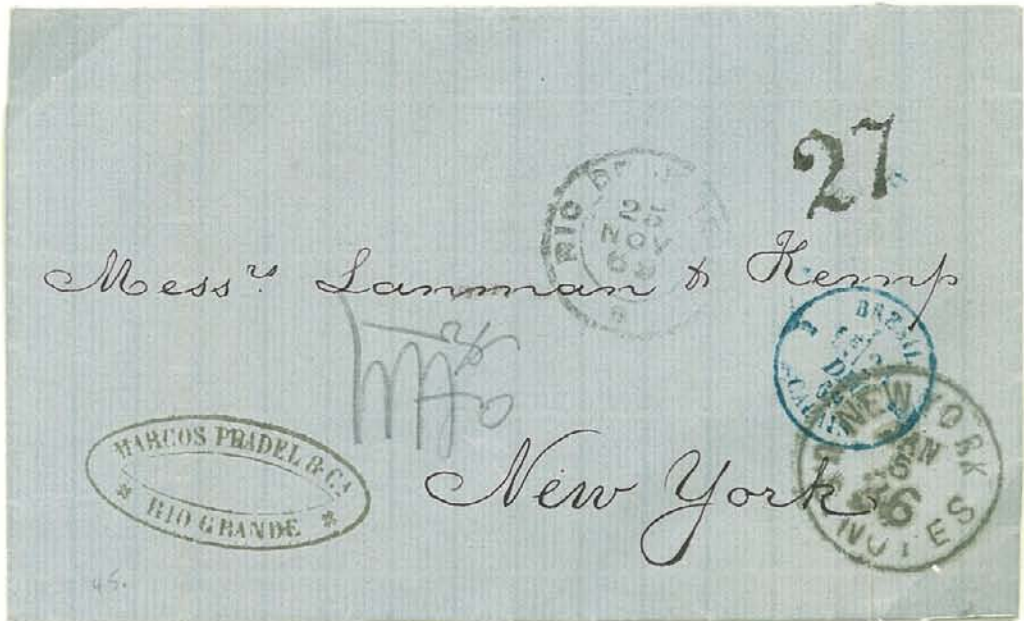 27
RIO DE
25
NOV
Messrs Lanman & Kemp
BRAZIL
DEC
NEW YORK
JAN
36
NOTES
MARCOS PRADEL & CA
RIO GRANDE
New York
45.